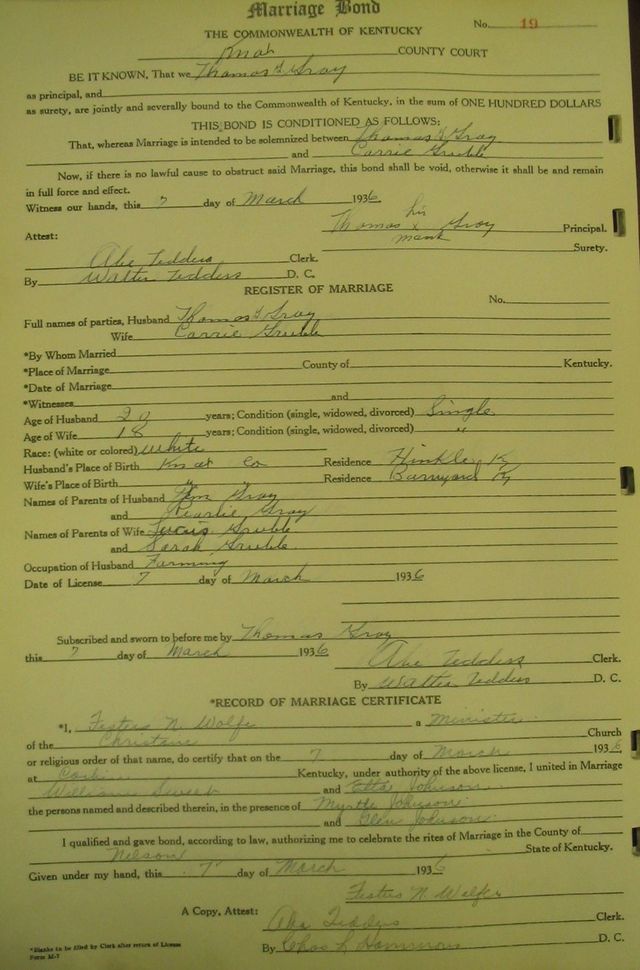 Marriage Bond
No. 19
THE COMMONWEALTH OF KENTUCKY
Knox COUNTY COURT
BE IT KNOWN, That we Thomas G Gray
as principal, and
as surety, are jointly and severally bound to the Commonwealth of Kentucky, in the sum of ONE HUNDRED DOLLARS
THIS BOND IS CONDITIONED AS FOLLOWS:
That, whereas Marriage is intended to be solemnized between Thomas G Gray
and Carrie Grubb
Now, if there is no lawful cause to obstruct said Marriage, this bond shall be void, otherwise it shall be and remain
in full force and effect.
Witness our hands, this 7 day of March 1936
Thomas his x mark Gray Principal.
Attest:
Surety.
Abe Tedders Clerk.
By Walter Tedders D. C.
REGISTER OF MARRIAGE
No.
Full names of parties, Husband Thomas G Gray
Wife Carrie Grubb
*By Whom Married
*Place of Marriage County of Kentucky.
*Date of Marriage
*Witnesses and
Age of Husband 20 years; Condition (single, widowed, divorced) Single
Age of Wife 18 years; Condition (single, widowed, divorced) "
Race: (white or colored) white
Husband's Place of Birth Knox Co Residence Hinkle, Ky
Wife's Place of Birth " " Residence Ky
Names of Parents of Husband Gray
and Pearlie Gray
Names of Parents of Wife Grubb
and Sarah Grubb
Occupation of Husband Farming
Date of License 7 day of March 1936
Subscribed and sworn to before me by Thomas Gray
this 7 day of March 1936
Abe Tedders Clerk.
By Walter Tedders D. C.
*RECORD OF MARRIAGE CERTIFICATE
*I, N. Wolfe a Minister
of the Christian Church
or religious order of that name, do certify that on the 7 day of March 1936
at Corbin Kentucky, under authority of the above license, I united in Marriage
William and Etta Johnson
the persons named and described therein, in the presence of Myrtle Johnson
and Glen Johnson
I qualified and gave bond, according to law, authorizing me to celebrate the rites of Marriage in the County of
Nelson State of Kentucky.
Given under my hand, this 7 day of March 1936
N. Wolfe
A Copy, Attest: Abe Tedders Clerk.
By Chas L Hammons D. C.
*Blanks to be filled by Clerk after return of License
Form M-7